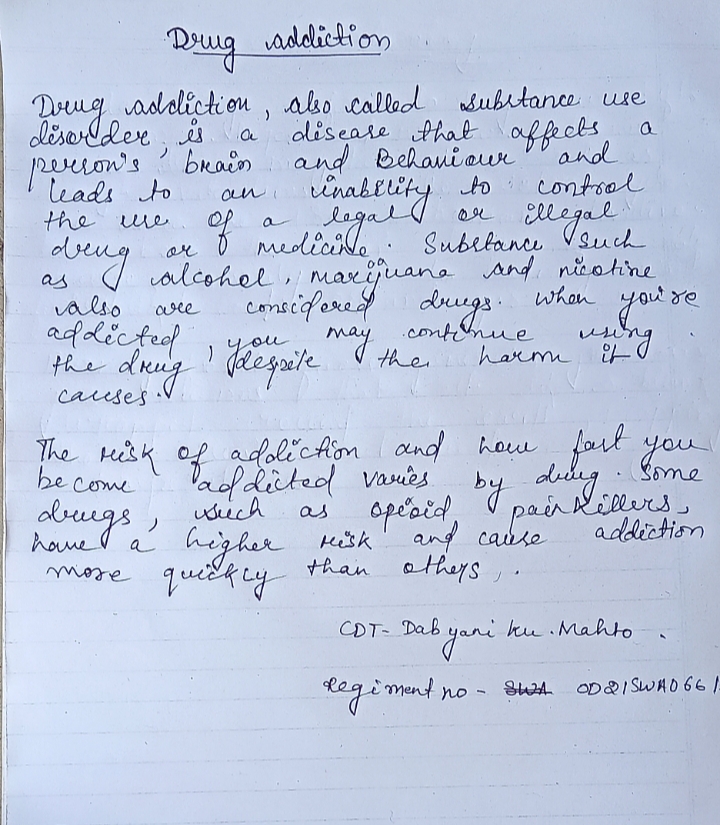 Drug addiction
Drug addiction, also called substance use
disorder, is a disease that affects a
person's brain and Behaviour and
leads to an inability to control
the use of a legal or illegal
drug or medicine. Substance such
as alcohol, marijuana and nicotine
also are considered drugs. When you're
addicted, you may continue using
the drug despite the harm it
causes.
The risk of addiction and how fast you
become addicted varies by drug. Some
drugs, such as opioid painkillers,
have a higher risk and cause addiction
more quickly than others,.
CDT- Dabyani ku. Mahto.
Regiment no - SWA OD21SWA0661